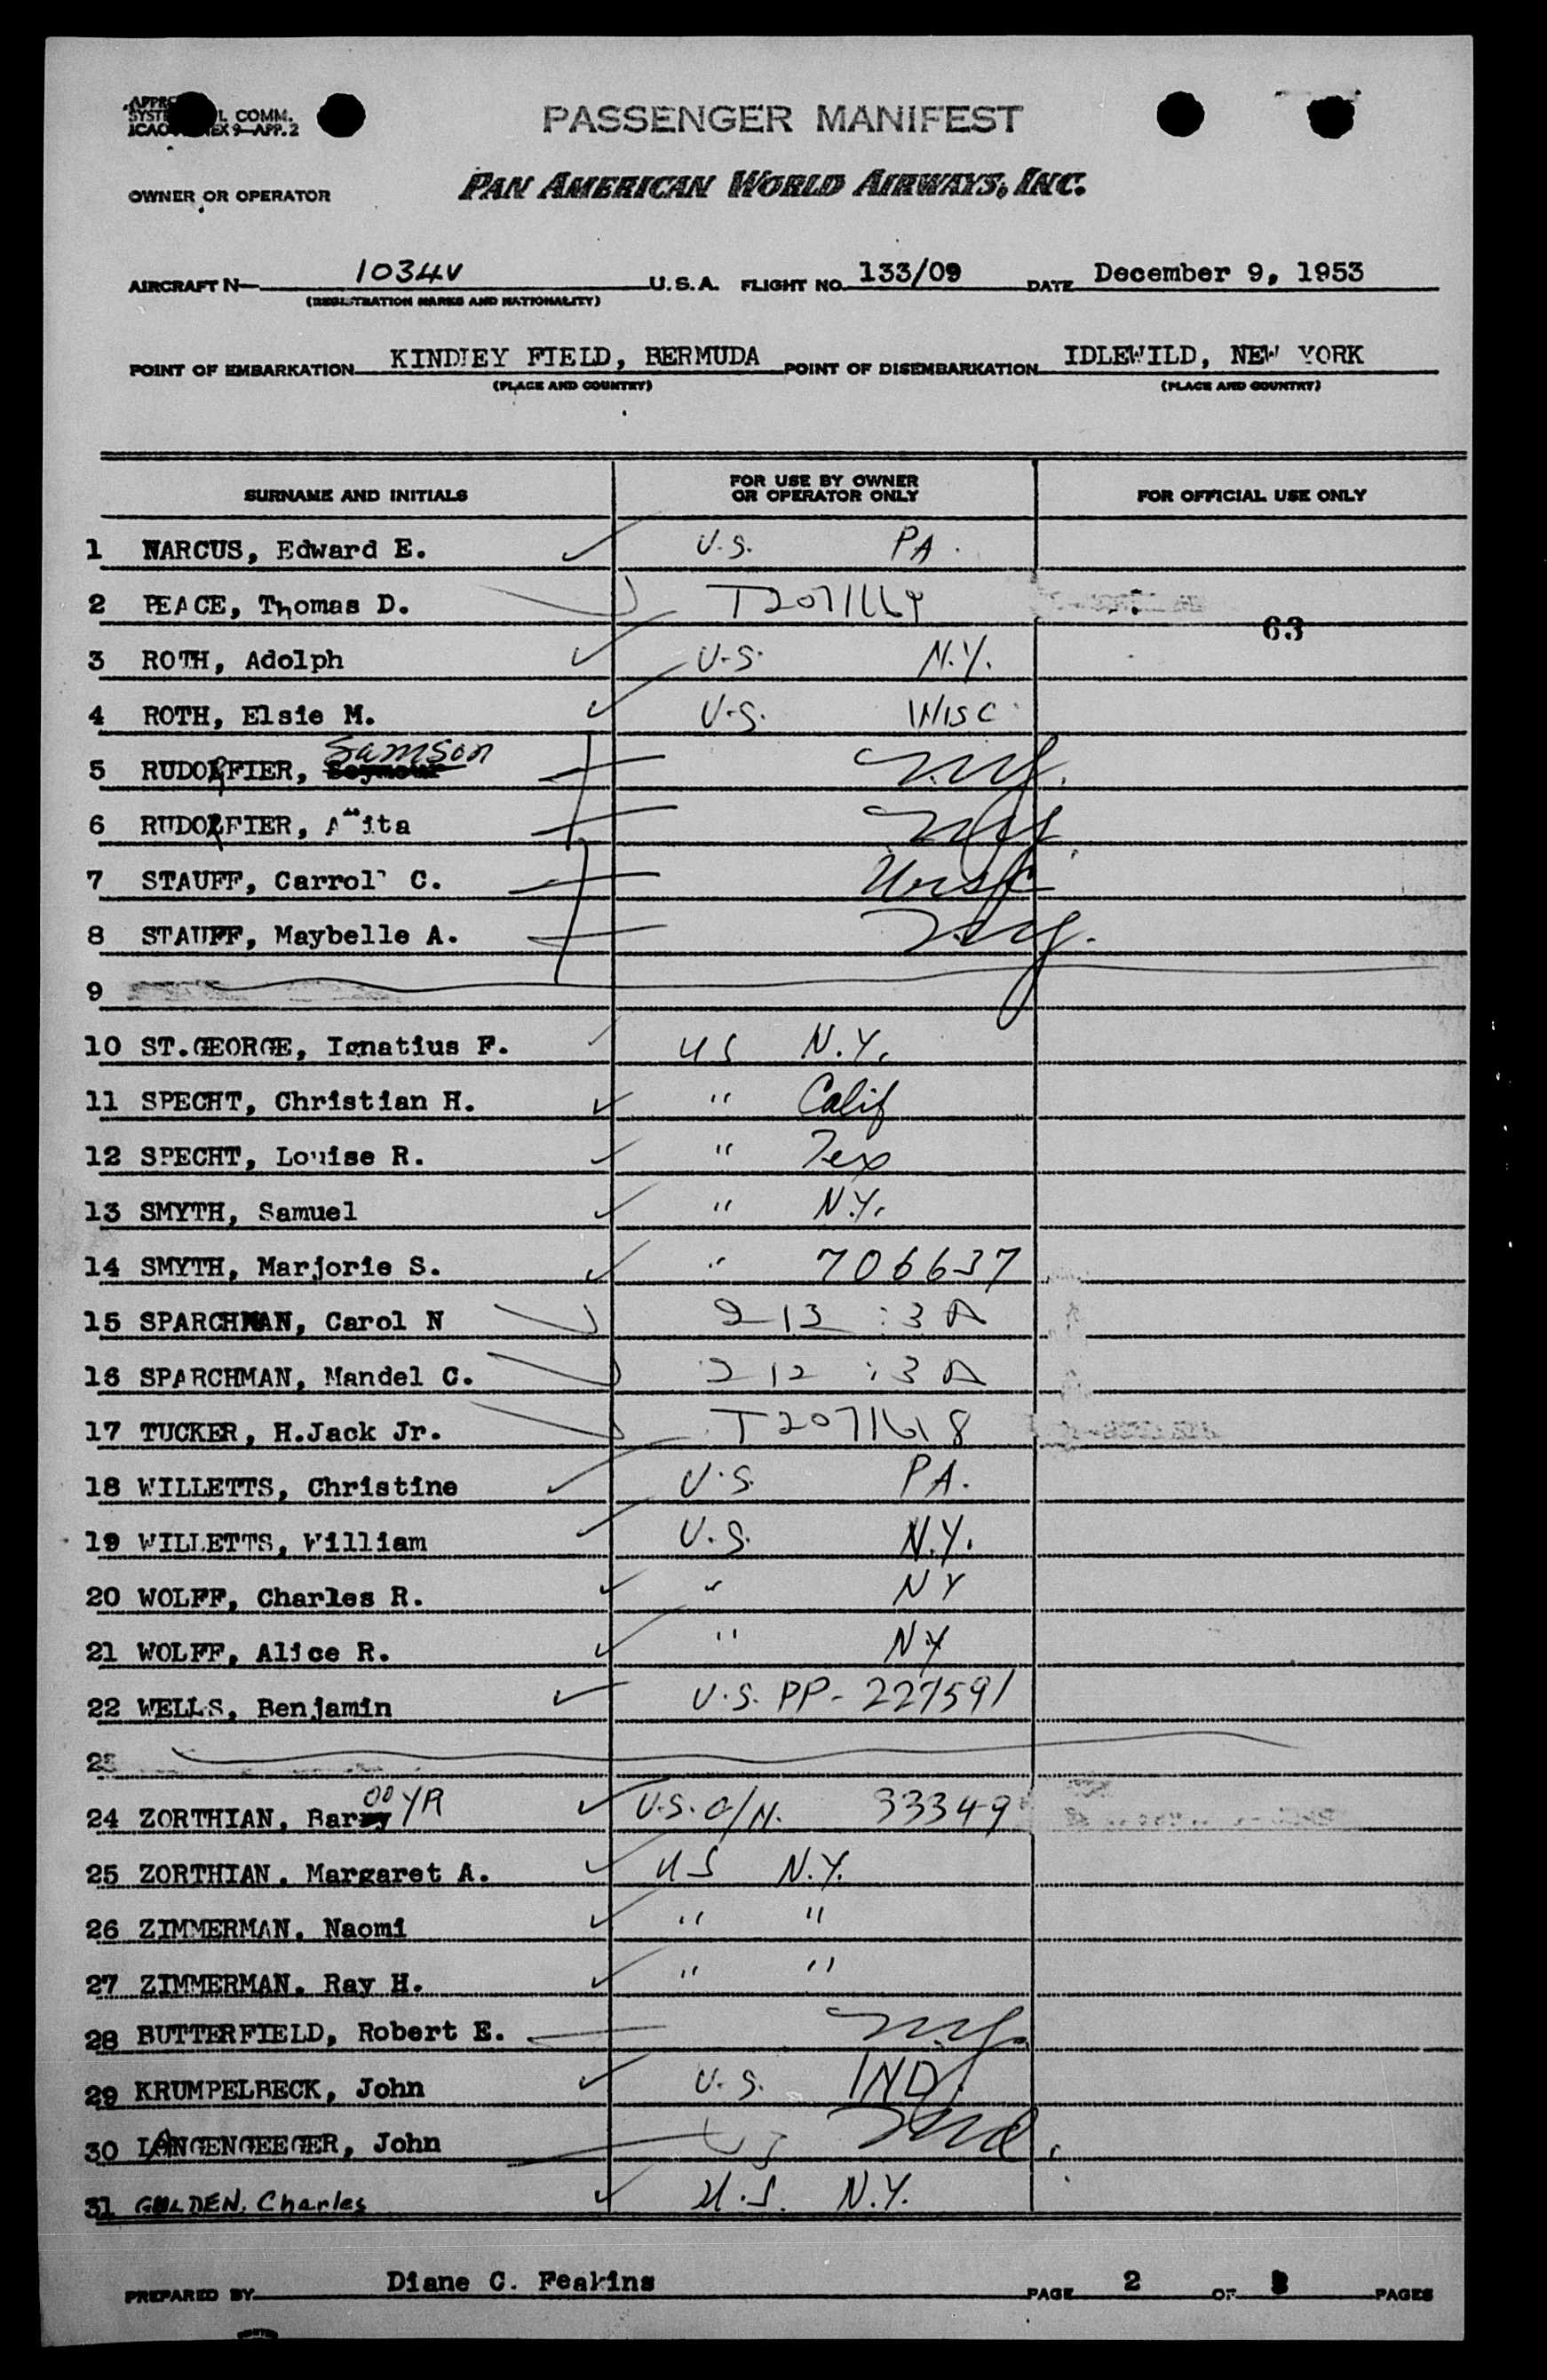 PASSENGER MANIFEST
L COMM.
EX 9—APP. 2
OWNER OR OPERATOR PAN AMERICAN WORLD AIRWAYS, INC.
AIRCRAFT N— 1034V U.S.A. FLIGHT NO. 133/09 DATE December 9, 1953
(REGISTRATION MARKS AND NATIONALITY)
POINT OF EMBARKATION KINDLEY FIELD, BERMUDA POINT OF DISEMBARKATION IDLEWILD, NEW YORK
(PLACE AND COUNTRY) (PLACE AND COUNTRY)
SURNAME AND INITIALS FOR USE BY OWNER OR OPERATOR ONLY FOR OFFICIAL USE ONLY
1 NARCUS, Edward E. U.S. PA.
2 PEACE, Thomas D.
63
3 ROTH, Adolph U.S. N.Y.
4 ROTH, Elsie M. U.S. WISC
Samson
5 RUDOFFIER, Seymour N.Y.
6 N.Y.
7 STAUFF, Carroll C.
8 STAUFF, Maybelle A.
9
10 ST.GEORGE, Ignatius F. US N.Y.
11 SPECHT, Christian H. " Calif
12 SPECHT, Louise R. " Tex
13 SMYTH, Samuel " N.Y.
14 SMYTH, Marjorie S. " 706637
15 SPARCHMAN, Carol N 212 :3 A
16 SPARCHMAN, Mandel C. 212 :3 A
17 TUCKER, H.Jack Jr. T2071618
18 WILLETTS, Christine U.S. PA.
19 WILLETTS, William U.S. N.Y.
20 WOLFF, Charles R. " NY
21 WOLFF, Alice R. " NY
22 WELLS, Benjamin U.S. PP- 227591
23
24 ZORTHIAN, Barry U.S. C/N. 33349
25 ZORTHIAN, Margaret A. US N.Y.
26 ZIMMERMAN, Naomi " "
27 ZIMMERMAN, Ray H. " "
28 BUTTERFIELD, Robert E. N.Y.
29 KRUMPELBECK, John U.S. IND.
30 John
31 GULDEN, Charles U.S. N.Y.
PREPARED BY Diane C. Feakins PAGE 2 OF 3 PAGES